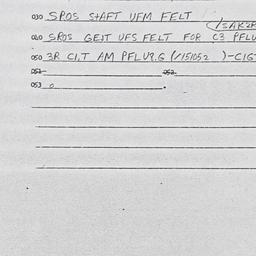 030 SPOS SHAFT UFM FELT
040 SPOS GEIT UFS FELT FOR C3 PFLU
050 3R CI,T AM PFLUR.G (/151052 )-CIG
051 052
053 0